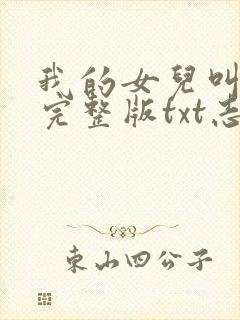 我的女兒叫
完整版txt志
東山四公子